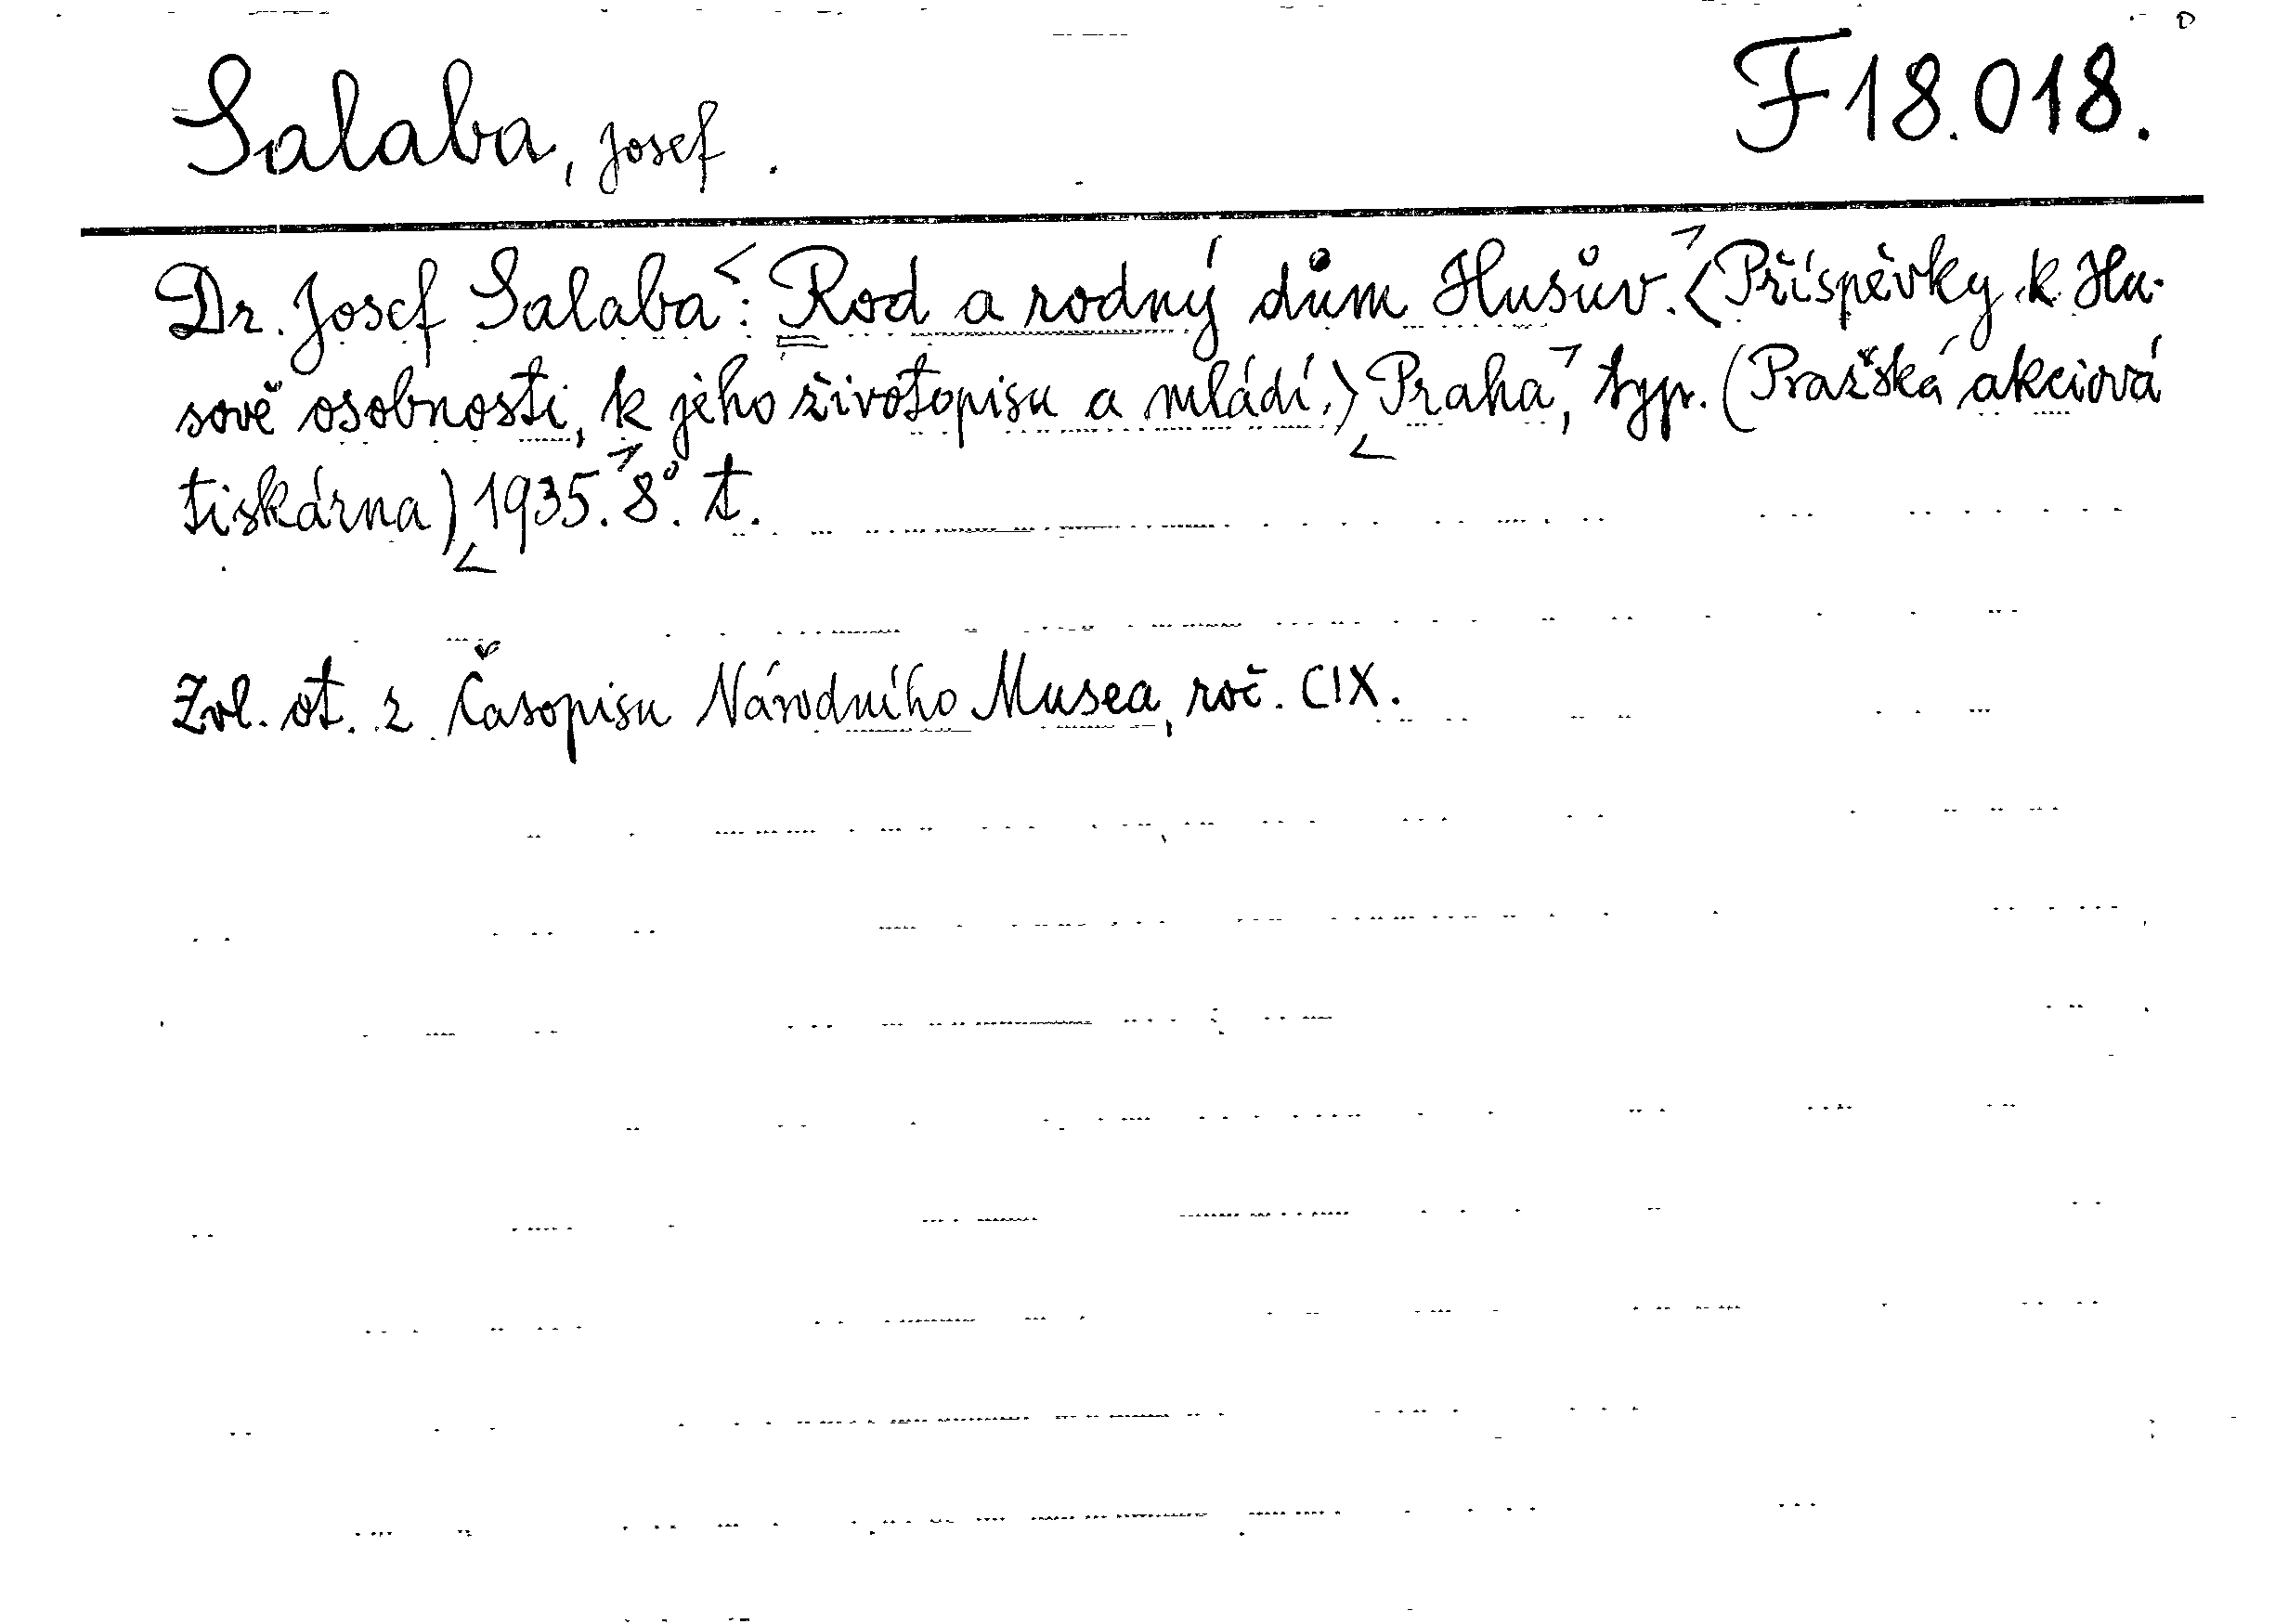 Salaba, Josef. F 18.018.
Dr. Josef Salaba: Rod a rodný dům Husův. (Příspěvky k Hu-
sově osobnosti, k jeho životopisu a mládí.) Praha, typ. (Pražská akciová
tiskárna) 1935. 8°. t.
Zvl. ot. z Časopisu Národního Musea, roč. CIX.